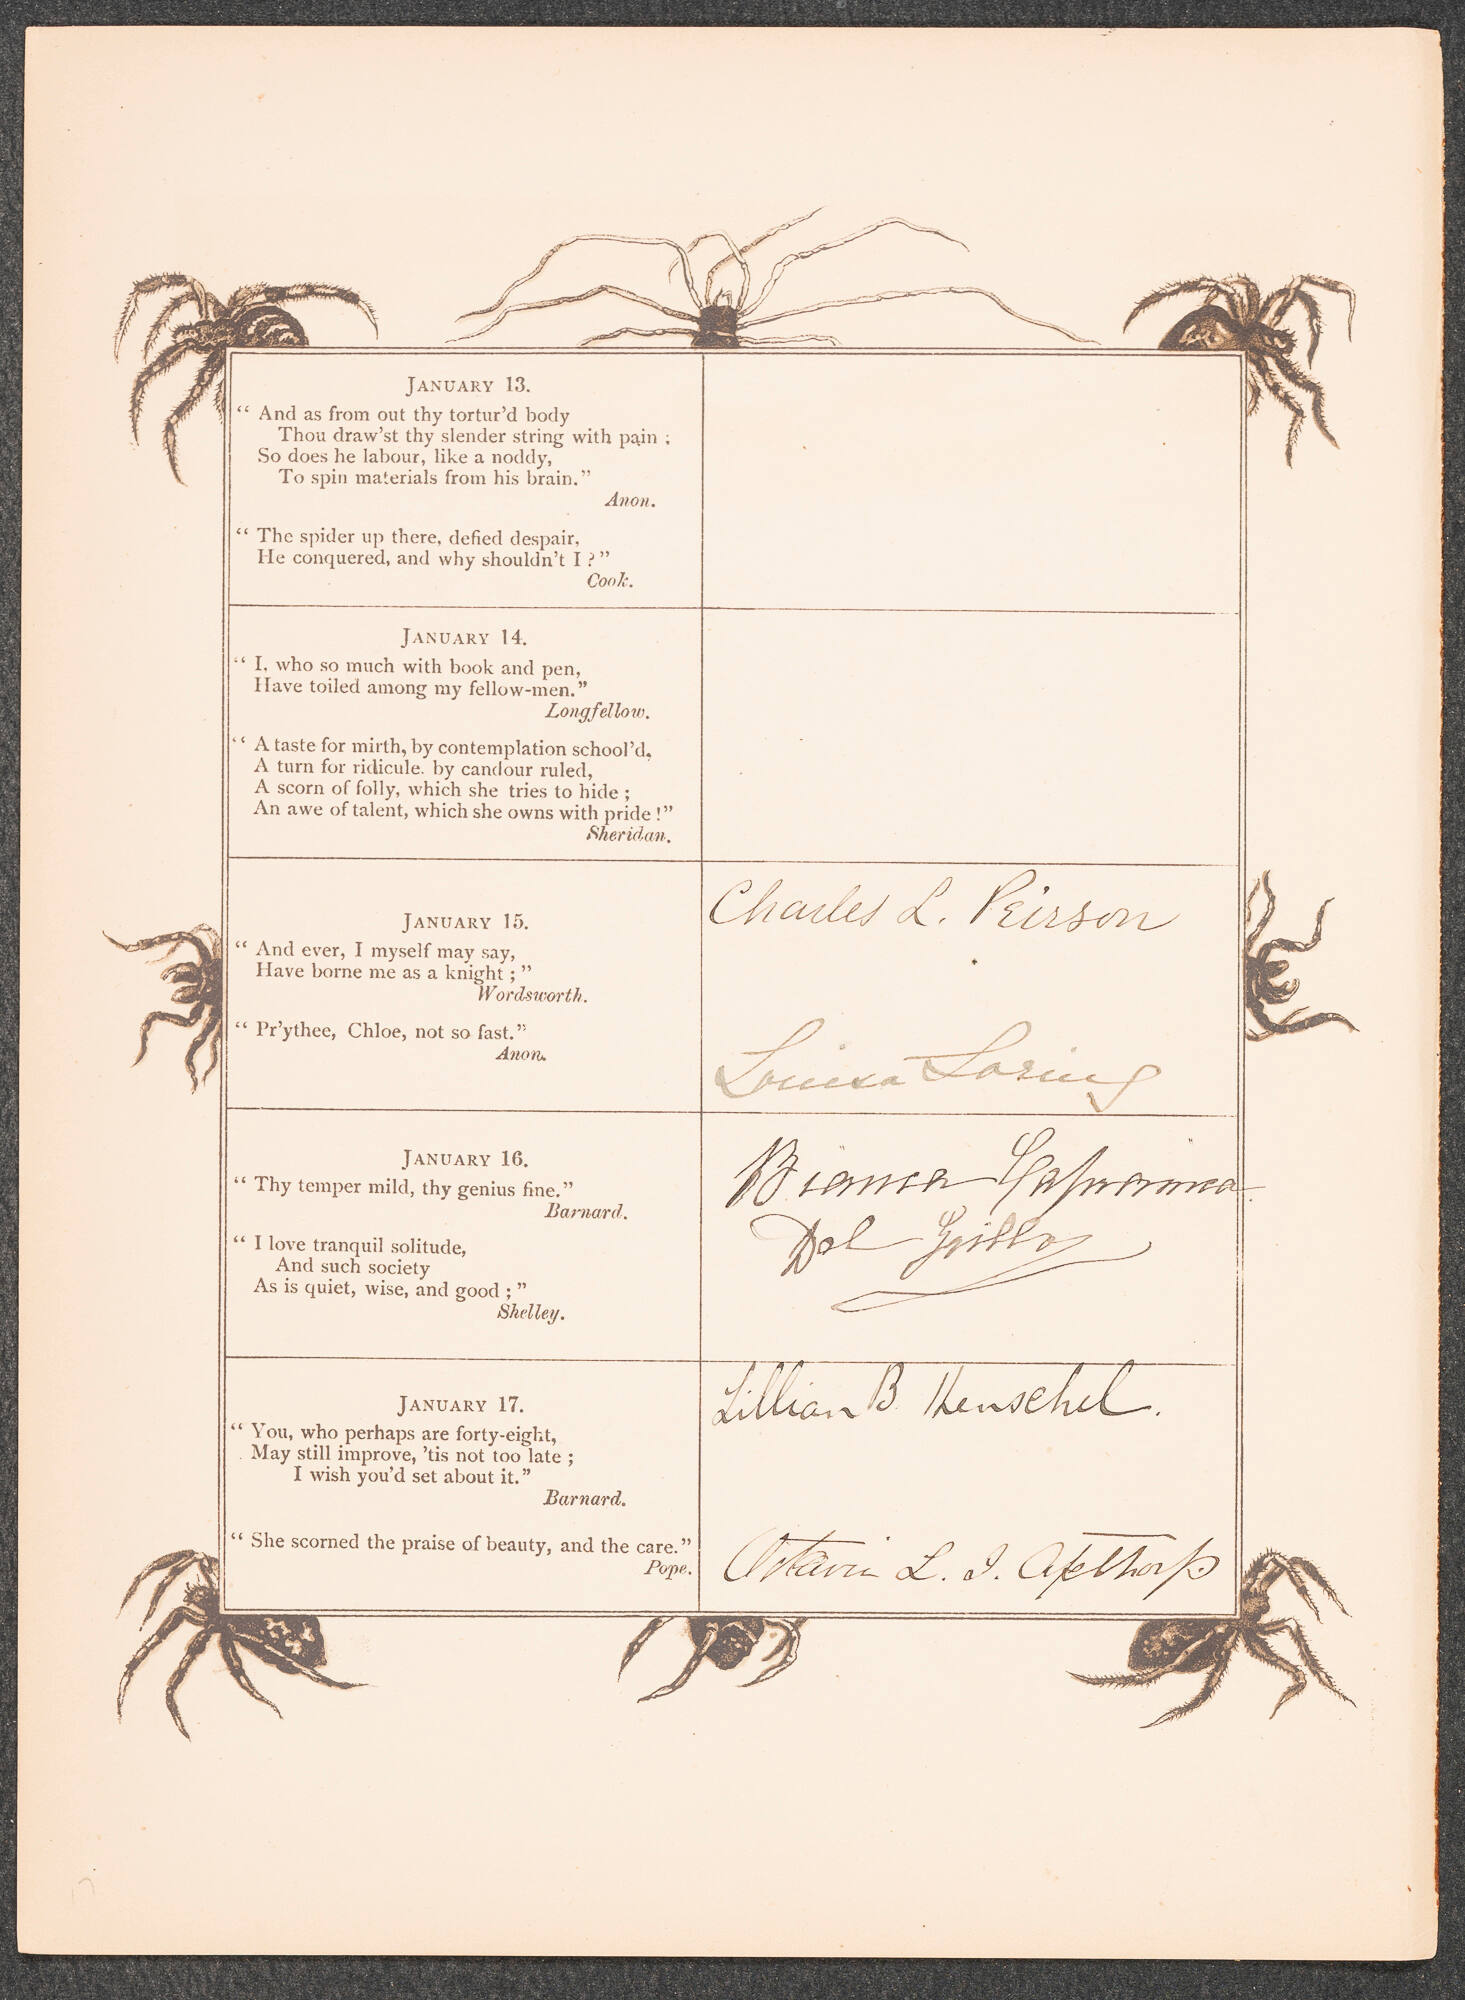 JANUARY 13.
“ And as from out thy tortur’d body
Thou draw’st thy slender string with pain ;
So does he labour, like a noddy,
To spin materials from his brain.”
Anon.
“ The spider up there, defied despair,
He conquered, and why shouldn’t I ?”
Cook.
JANUARY 14.
“ I, who so much with book and pen,
Have toiled among my fellow-men.”
Longfellow.
“ A taste for mirth, by contemplation school’d,
A turn for ridicule. by candour ruled,
A scorn of folly, which she tries to hide ;
An awe of talent, which she owns with pride !”
Sheridan.
JANUARY 15.
“ And ever, I myself may say,
Have borne me as a knight ; ”
Wordsworth.
“ Pr’ythee, Chloe, not so fast.”
Anon.
Charles L. Peirson
Louisa Loring
JANUARY 16.
“ Thy temper mild, thy genius fine.”
Barnard.
“ I love tranquil solitude,
And such society
As is quiet, wise, and good ; ”
Shelley.
Bianca Capranica
Del Grillo
JANUARY 17.
“ You, who perhaps are forty-eight,
May still improve, ’tis not too late ;
I wish you’d set about it.”
Barnard.
“ She scorned the praise of beauty, and the care.”
Pope.
Lillian B. Henschel.
Octavia L. I. Apthorp